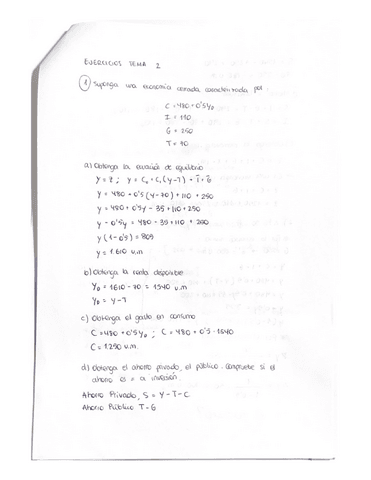 EJERCICIOS TEMA 2
1 Suponga una economía cerrada caracterizada por:
C = 480 + 0'5 YD
I = 110
G = 250
T = 70
a) Obtenga la ecuación de equilibrio
Y = Z ; Y = C0 + C1 (Y - T) + I + G
Y = 480 + 0'5 (Y - 70) + 110 + 250
Y = 480 + 0'5Y - 35 + 110 + 250
Y - 0'5Y = 480 - 35 + 110 + 250
Y (1 - 0'5) = 805
Y = 1.610 u.m
b) Obtenga la renta disponible
YD = 1610 - 70 = 1540 u.m
YD = Y - T
c) Obtenga el gasto en consumo
C = 480 + 0'5 YD ; C = 480 + 0'5 · 1540
C = 1.250 u.m.
d) Obtenga el ahorro privado, el público. Compruebe si el
ahorro es = a inversión
Ahorro Privado, S = Y - T - C
Ahorro Público T - G